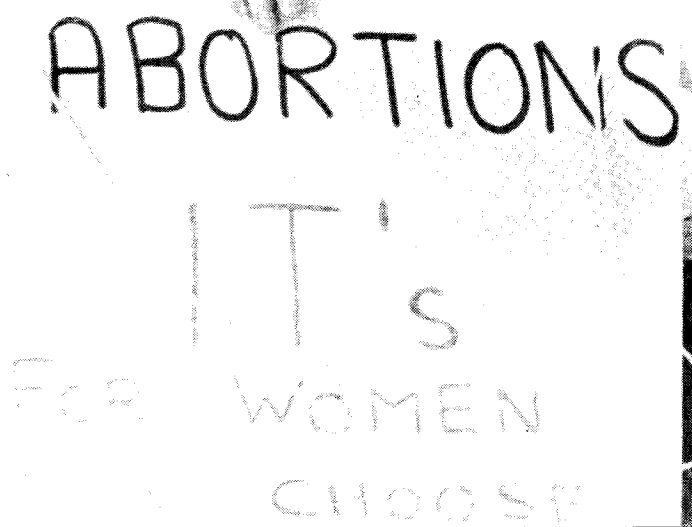 ABORTIONS
IT's
FOR WOMEN
CHOOSE